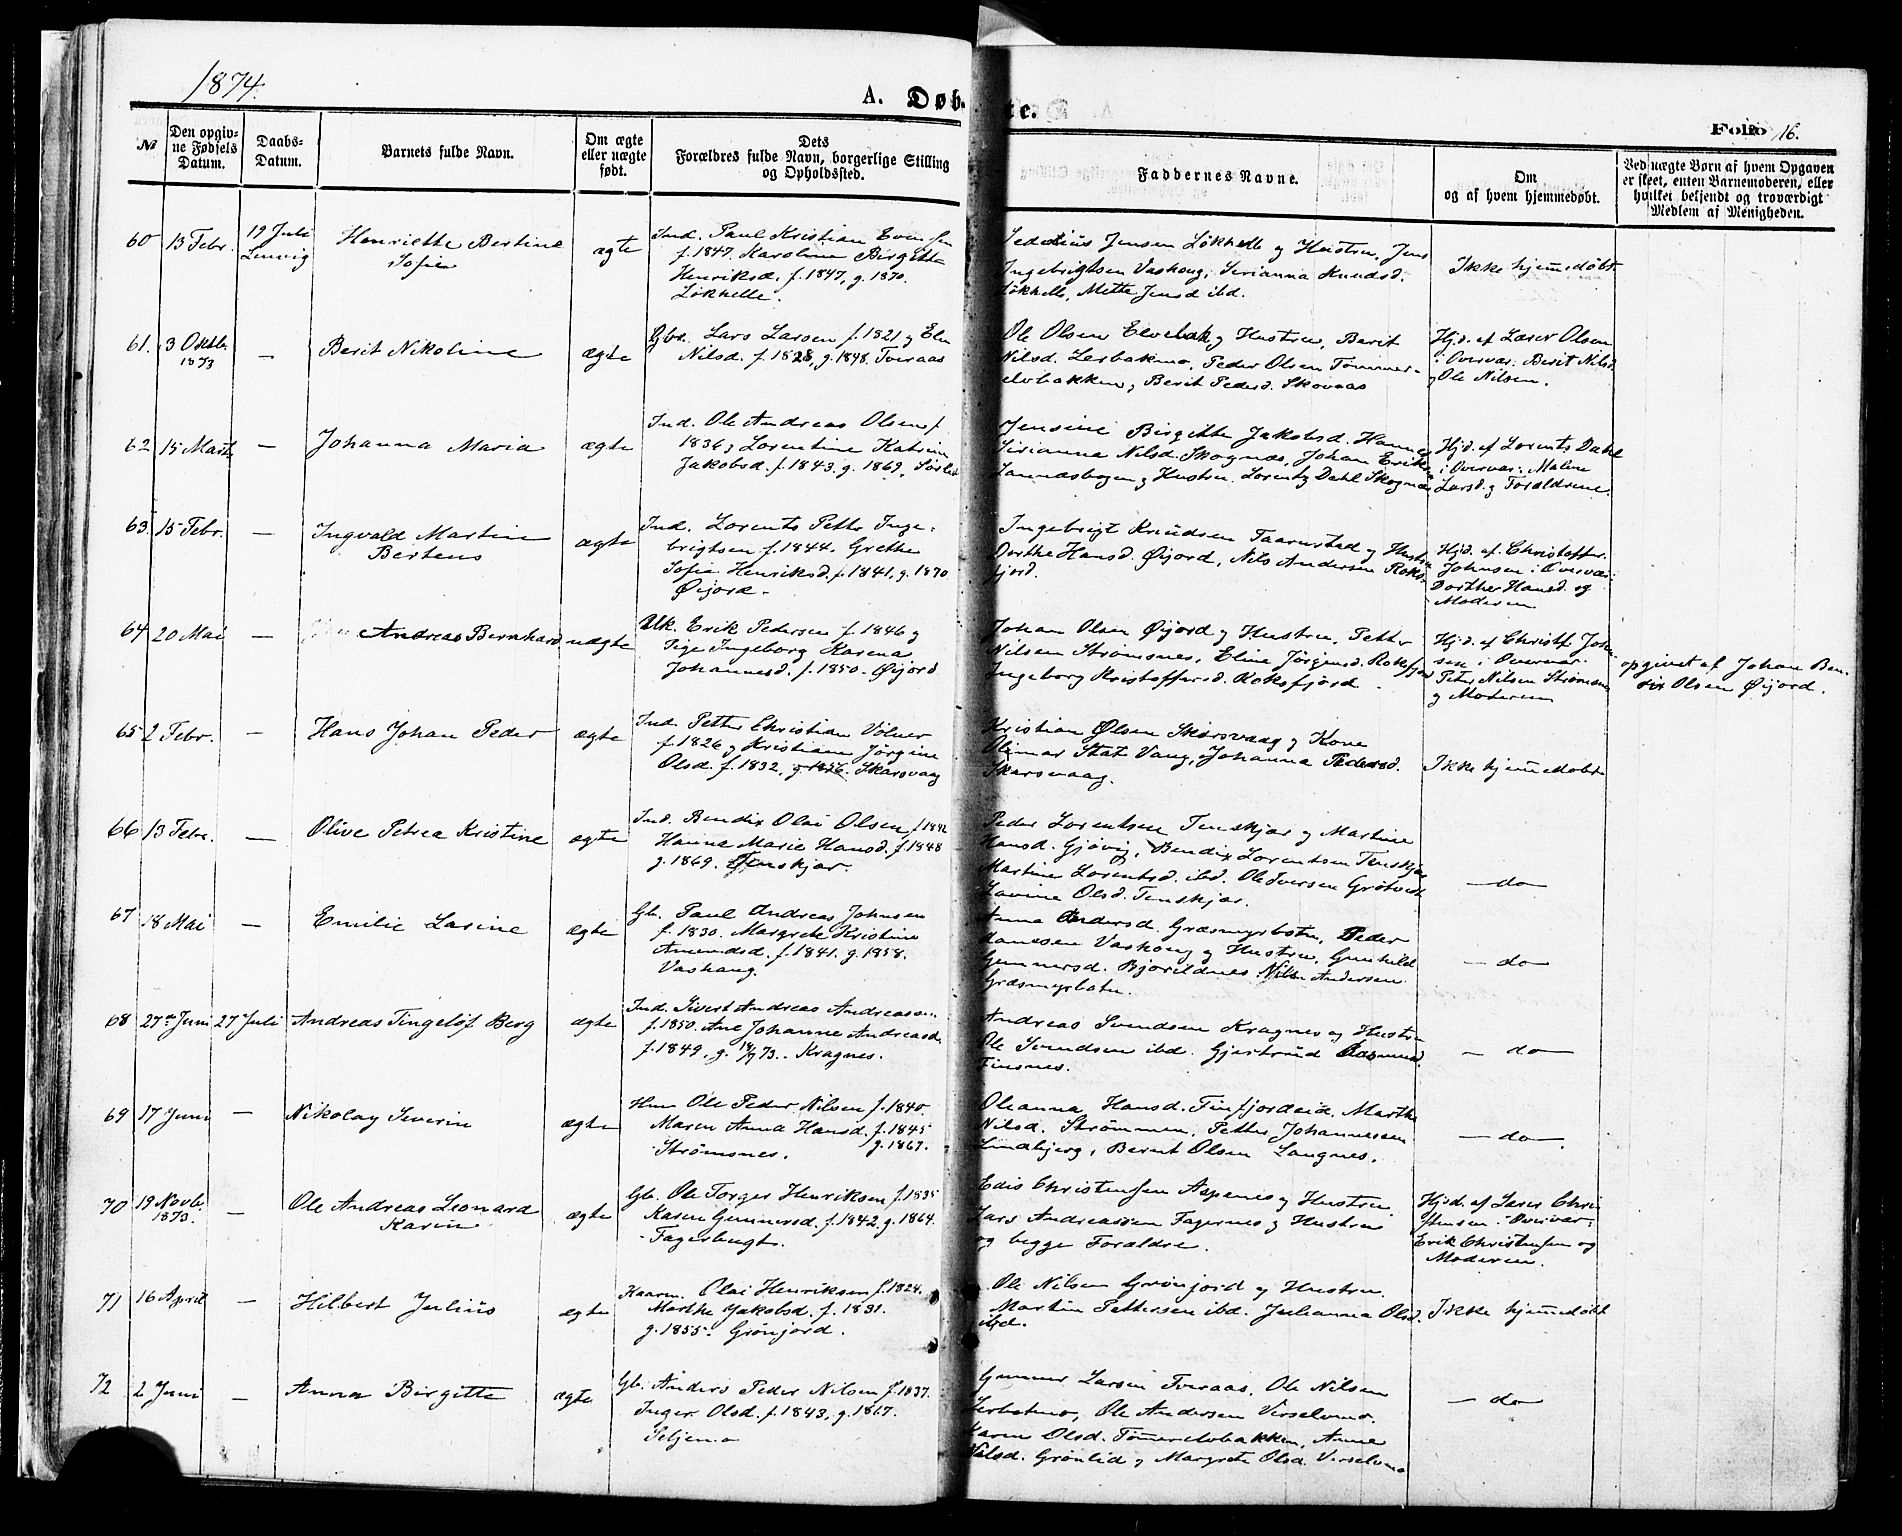 1874.
A. Døbte.
Folio 16.
№
Den opgiv-
ne Fødsels
Datum.
Daabs-
Datum.
Barnets fulde Navn.
Om ægte
eller uægte
født.
Dets
Forældres fulde Navn, borgerlige Stilling
og Opholdssted.
Faddernes Navne.
Om
og af hvem hjemmedøbt.
Ved uægte Børn af hvem Opgaven
er skeet, enten Barnemoderen, eller
hvilket bekjendt og troværdigt
Medlem af Menigheden.
60 13 Febr. 19 Juli
Lenvig
Henriette Bertine
Sofie
ægte
Ind. Paul Kristian Evensen
f. 1847. Karoline Birgitte
Henriksd. f. 1847, g. 1870.
Løkhelle.
Jensen Løkhelle og Hustru, Jens
Ingebrigtsen Vashaug, Serianna Knudsd.
Løkhelle, Mette Jensd ibd.
Ikke hjemmedøbt
61. 3 Oktb.
1873
—
Berit Nikoline
ægte
Gbr. Lars Larsen f. 1821 og Elen
Nilsd. f. 1828, g. 1848. Tveraas
Ole Olsen Elvebak og Hustru, Berit
Nilsd. Lerbakmo, Peder Olsen Tømmer-
elvbakken, Berit Pedersd. Skovaas
Hjd. af Laser Olsen
i Overvær. Berit Nilsd.
og Ole Nilsen.
62 15 Marts
—
Johanna Maria
ægte
Ind. Ole Andreas Olsen f.
1836 og Lorentine Katrine
Jakobsd. f. 1843. g. 1869.
Jensine Birgitte Jakobsd. Hanna
Sirianna Nilsd. Skognæs, Johan Erik
og Hustru. Lorents Dahl Skognæs
Hjd. af Lorents Dahl
i Overvær: Malene
Larsd. og Forældrene.
63. 15 Febr.
—
Ingvald Martin
Berteus
ægte
Ind. Lorents Petter Inge-
brigtsen f. 1844. Grethe
Sofie Henriksd. f. 1841, g. 1870
Øijord.
Ingebrigt Knudsen Taarnstad og Hustru
Dorthe Hansd. Øijord, Nils Andersen Roks-
fjord.
Hjd. af. Christoffer
Johnsen i Overvær
Dorthe Hansd. og
Moderen
64 20 Mai
—
Andreas Bernhard
uægte
Uk. Erik Pedersen f. 1846 og
Pige Ingeborg Karena
Johannesd. f. 1850. Øijord
Johan Olsen Øijord og Hustru, Petter
Nilsen Strømsnes, Eline Jørgensd. Roksfjord
Ingeborg Kristoffersd. Roksfjord.
Hjd. af Christf. John-
sen i Overvær.
Peter Nilsen Strømsnes
og Moderen
opgivet af Johan Ben-
dix Olsen Øijord.
65 2 Febr.
—
Hans Johan Peder
ægte
Ind. Petter Christian Vølner
f. 1826 og Kristiane Jørgine
Olsd. f. 1832, g. 1856. Skarsvaag
Kristian Olsen Skarsvaag og Kone
Olimar Stat Vang, Johanna Pedersd.
Skarsvaag.
Ikke hjemmedøbt
66 13 Febr.
—
Olive Petrea Kristine
ægte
Ind. Bendix Olai Olsen f. 1842
Hanna Marie Hansd. f. 1848
g. 1869. Tenskjær.
Peder Lorentsen Tenskjær og Martine
Hansd. Gjøvig, Bendix Lorentsen Tenskjær
Martine Lorentsd. ibd. Ole Iversen Grøtvedt
Lavine Olsd. Tenskjær.
— do —
67 18 Mai
—
Emilie Lasine
ægte
Gb. Paul Andreas Johnsen
f. 1830. Margrete Kristine
Amundsd. f. 1841. g. 1858.
Vashaug.
Anna Andersd. Græsmyrbotn, Peder
Hanssen Vashaug og Hustru, Gunhild
Gunnersd. Bjorildnes. Nils Andersen
Græsmyrbotn.
— do —
68 27de Juni 27 Juli
Andreas Tingelöf Berg
ægte
Ind. Sivert Andreas Andreassen
f. 1850. Ane Johanne Andreasd.
f. 1849, g. 18/9 73. Kragnes.
Andreas Svendsen Kragnes og Hustru
Ole Svendsen ibd. Gjertrud
Finsnes.
— do —
69 17 Juni
—
Nikolay Severin
ægte
Hm Ole Peder Nilsen f. 1840.
Maren Anna Hansd. f. 1845
g. 1867.
Strømsnes.
Oleanna Hansd. Finfjordeid, Marthe
Nilsd. Strømmen, Petter Johannessen
Lindbjerg, Bernt Olsen Langnes.
— do —
70 19 Novb.
1873.
—
Ole Andreas Leonard
Karin
ægte
Gb. Ole Torger Henriksen f. 1835
Karen Gunnersd. f. 1842. g. 1864.
Fagerbugt.
Edis Christensen Aspenes og Hustru
Lars Andreassen Fagernes og Hustru
og begge Forældre.
Hjd. af Laser Chri-
stensen i Overvær:
Erik Christensen og
Moderen.
71 16 April
—
Hilbert Julius
ægte
Kaarm. Olai Henriksen f. 1824.
Marthe Jakobsd. f. 1831.
g. 1855. Grønjord.
Ole Nilsen Grønjord og Hustru
Martin Pettersen ibd. Julianna Olsd.
ibd.
Ikke hjemmedøbt
72 2 Juni
—
Anna Birgitte
ægte
Gb. Anders Peder Nilsen f. 1837.
Inger Olsd. f. 1843, g. 1867.
Seljemo
Gunner Larsen Tveraas, Ole Nilsen
Lerbakmo, Ole Andersen Verselvmo.
Karen Olsd. Tømmerelvbakken, Anne
Nilsd. Grønlid og Margrete Olsd. Verselvmo
— do —